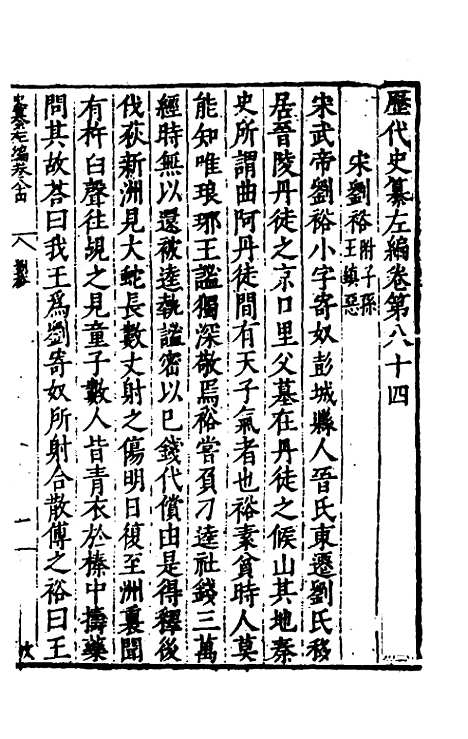 歷代史纂左編卷第八十四
宋劉裕附子孫
王鎮惡
宋武帝劉裕小字寄奴彭城縣人晉氏東遷劉氏移
居晉陵丹徒之京口里父墓在丹徒之候山其地秦
史所謂曲阿丹徒間有天子氣者也裕素貧時人莫
能知唯琅琊王謐獨深敬焉裕嘗負刁逵社錢三萬
經時無以還被逵執謐密以已錢代償由是得釋後
伐荻新洲見大蛇長數丈射之傷明日復至洲裏聞
有杵臼聲往覘之見童子數人皆青衣於榛中擣藥
問其故荅曰我王爲劉寄奴所射合散傅之裕曰王
史纂左編卷八十四
劉裕
一